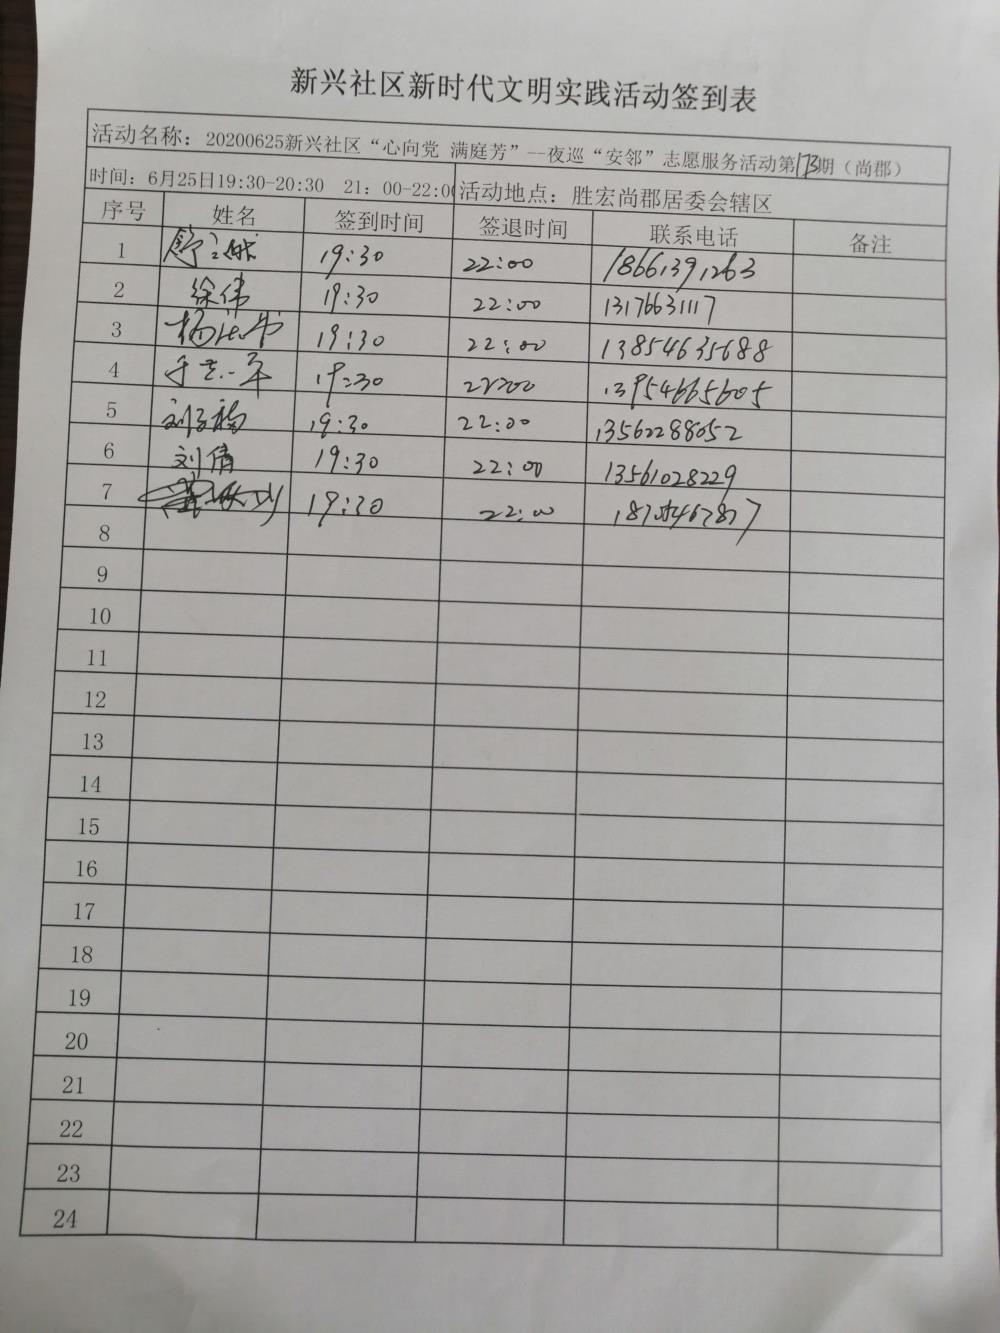 新兴社区新时代文明实践活动签到表
活动名称：20200625新兴社区“心向党 满庭芳”--夜巡“安邻”志愿服务活动第173期（尚郡）
时间：6月25日19:30-20:30 21：00-22:00 活动地点：胜宏尚郡居委会辖区
序号 姓名 签到时间 签退时间 联系电话 备注
1 19:30 22:00 18661391263
2 徐伟 19:30 22:00 13176631117
3 19:30 22:00 13854635688
4 19:30 22:00 13954665605
5 19:30 22:00 13562288052
6 刘倩 19:30 22:00 13561028229
7 19:30 22:00
8
9
10
11
12
13
14
15
16
17
18
19
20
21
22
23
24